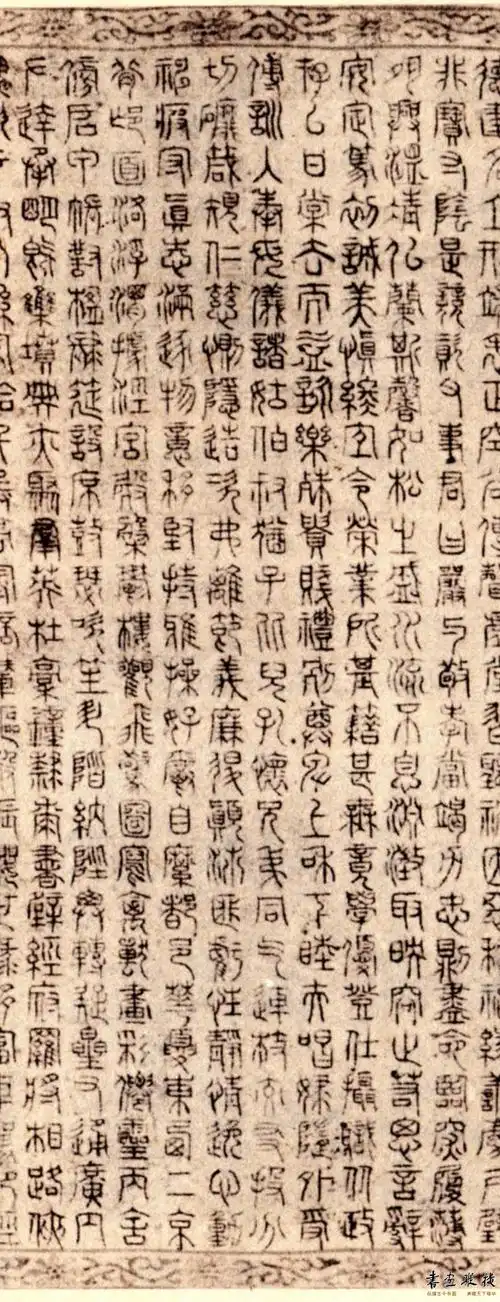 德建名立形端表正空谷傳聲虛堂習聽禍因惡積福緣善慶尺璧
非寶寸陰是競資父事君曰嚴與敬孝當竭力忠則盡命臨深履薄
夙興溫凊似蘭斯馨如松之盛川流不息淵澄取映容止若思言辭
安定篤初誠美慎終宜令榮業所基籍甚無竟學優登仕攝職從政
存以甘棠去而益詠樂殊貴賤禮別尊卑上和下睦夫唱婦隨外受
傅訓入奉母儀諸姑伯叔猶子比兒孔懷兄弟同氣連枝交友投分
切磨箴規仁慈惻隱造次弗離節義廉退顛沛匪虧性靜情逸心動
神疲守真志滿逐物意移堅持雅操好爵自縻都邑華夏東西二京
背邙面洛浮渭據涇宮殿盤鬱樓觀飛驚圖寫禽獸畫彩仙靈丙舍
傍啟甲帳對楹肆筵設席鼓瑟吹笙升階納陛弁轉疑星右通廣內
左達承明既集墳典亦聚群英杜稾鍾隸漆書壁經府羅將相路俠
槐卿戶封八縣家給千兵高冠陪輦驅轂振纓世祿侈富車駕肥輕